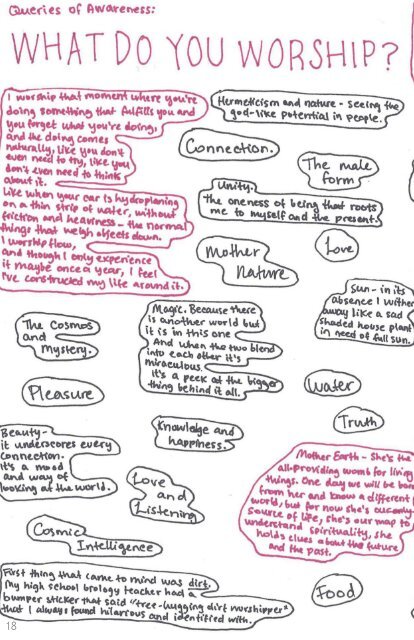 Queries of Awareness:
WHAT DO YOU WORSHIP?
I worship that moment where you're
doing something that fulfills you and
you forget what you're doing,
and the doing comes
naturally, like you don't
even need to try, like you
don't even need to think
about it.
Like when your car is hydroplaning
on a thin strip of water, without
friction and heaviness - the normal
things that weigh objects down.
I worship flow,
and though I only experience
it maybe once a year, I feel
I've constructed my life around it.
Hermeticism and nature - seeing the
god-like potential in people.
Connection.
The male
form
Unity.
The oneness of being that roots
me to myself and the present.
Mother
Nature
Love
Sun - in its
absence I wither
away like a sad
shaded house plant
in need of full sun.
The Cosmos
and
Mystery.
Magic. Because there
is another world but
it is in this one
And when the two blend
into each other it's
miraculous
it's a peek at the bigger
thing behind it all.
Pleasure
Water
Truth
Beauty-
it underscores every
connection.
it's a mood
and way of
looking at the world.
Knowledge and
happiness.
Love
and
Listening
Mother Earth - She's the
all-providing womb for living
things. One day we will be born
from her and know a different
world, but for now she's our only
source of life, she's our map to
understand spirituality, she
holds clues about the future
and the past.
Cosmic
Intelligence
First thing that came to mind was dirt.
My high school biology teacher had a
bumper sticker that said "tree-hugging dirt worshipper"
that I always found hilarious and identified with.
Food
18